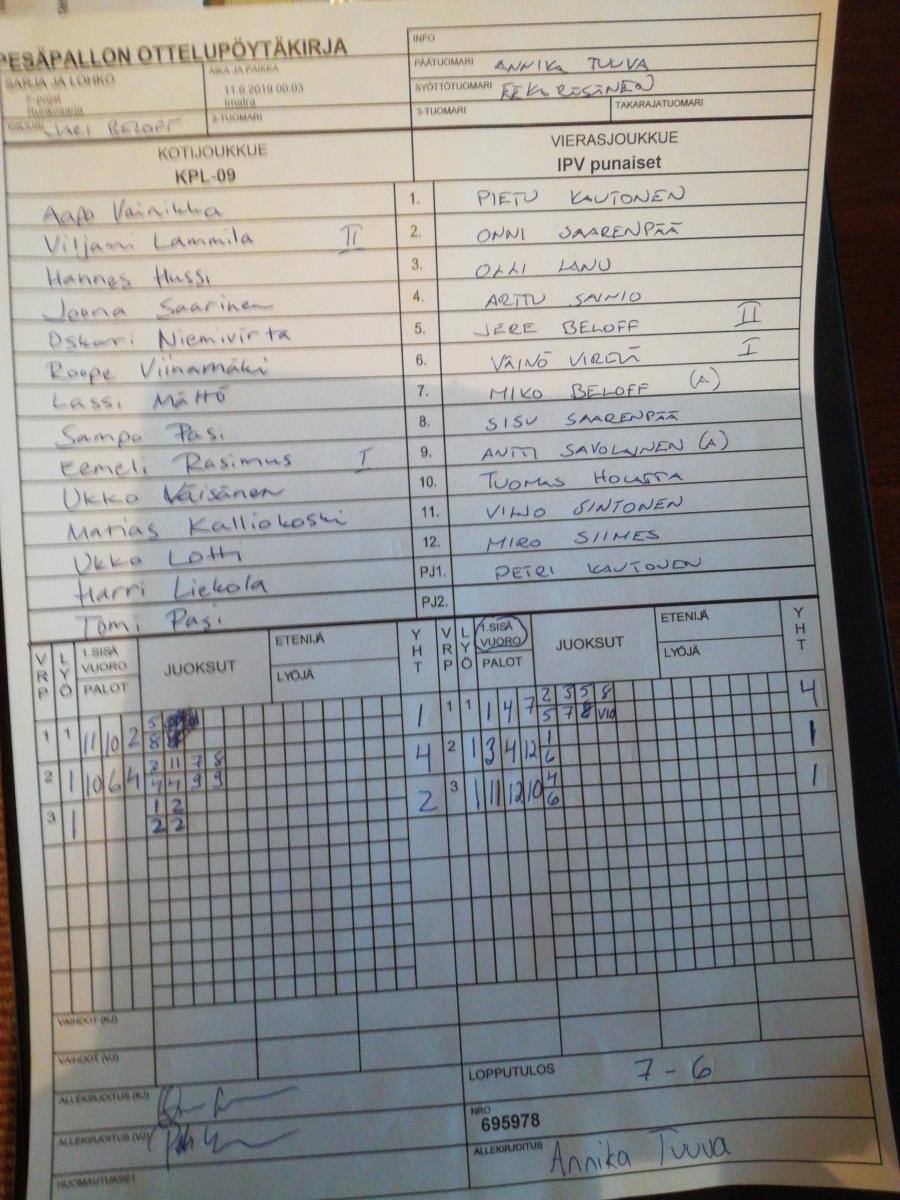 PESÄPALLON OTTELUPÖYTÄKIRJA
INFO
SARJA JA LOHKO
F-pojat
Runkosarja
AIKA JA PAIKKA
11.6.2019 00:03
Imatra
PÄÄTUOMARI ANNIKA TUUVA
SYÖTTÖTUOMARI
KIRJURI JARI BELOFF
2-TUOMARI
3-TUOMARI
TAKARAJATUOMARI
KOTIJOUKKUE
KPL-09
VIERASJOUKKUE
IPV punaiset
Aapo Vainikka 1. PIETU KAUTONEN
Viljami Lammila II 2. ONNI SAARENPÄÄ
Hannes Hussi 3. OLLI LANU
Joona Saarinen 4. ARTTU SAINIO
Oskari Niemivirta 5. JERE BELOFF II
Roope Viinamäki 6. VÄINÖ I
Lassi Mättö 7. MIKO BELOFF (A)
Sampo Pasi 8. SISU SAARENPÄÄ
Eemeli Rasimus I 9. ANTTI SAVOLAINEN (A)
Ukko Väisänen 10. TUOMAS
Matias Kalliokoski 11. VILJO SINTONEN
Ukko Lotti 12. MIRO SIIMES
Harri Liekola PJ1. PETRI KAUTONEN
Tomi Pasi PJ2.
VRP LYÖ 1.SISÄ VUORO PALOT JUOKSUT ETENIJÄ LYÖJÄ YHT VRP LYÖ 1.SISÄ VUORO PALOT JUOKSUT ETENIJÄ LYÖJÄ YHT
2 3 5 8
1 1 1 4 7 5 7 8 V10 4
5
1 1 11 10 2 8 1
1
2 1 3 4 12 6 1
2 11 7 8
2 1 10 6 4 4 4 9 9 4
4
3 1 11 12 10 6 1
1 2
3 1 2 2 2
VAIHDOT (KJ)
VAIHDOT (VJ)
ALLEKIRJOITUS (KJ)
LOPPUTULOS 7 - 6
ALLEKIRJOITUS (VJ)
NRO
695978
HUOMAUTUKSET
ALLEKIRJOITUS Annika Tuuva